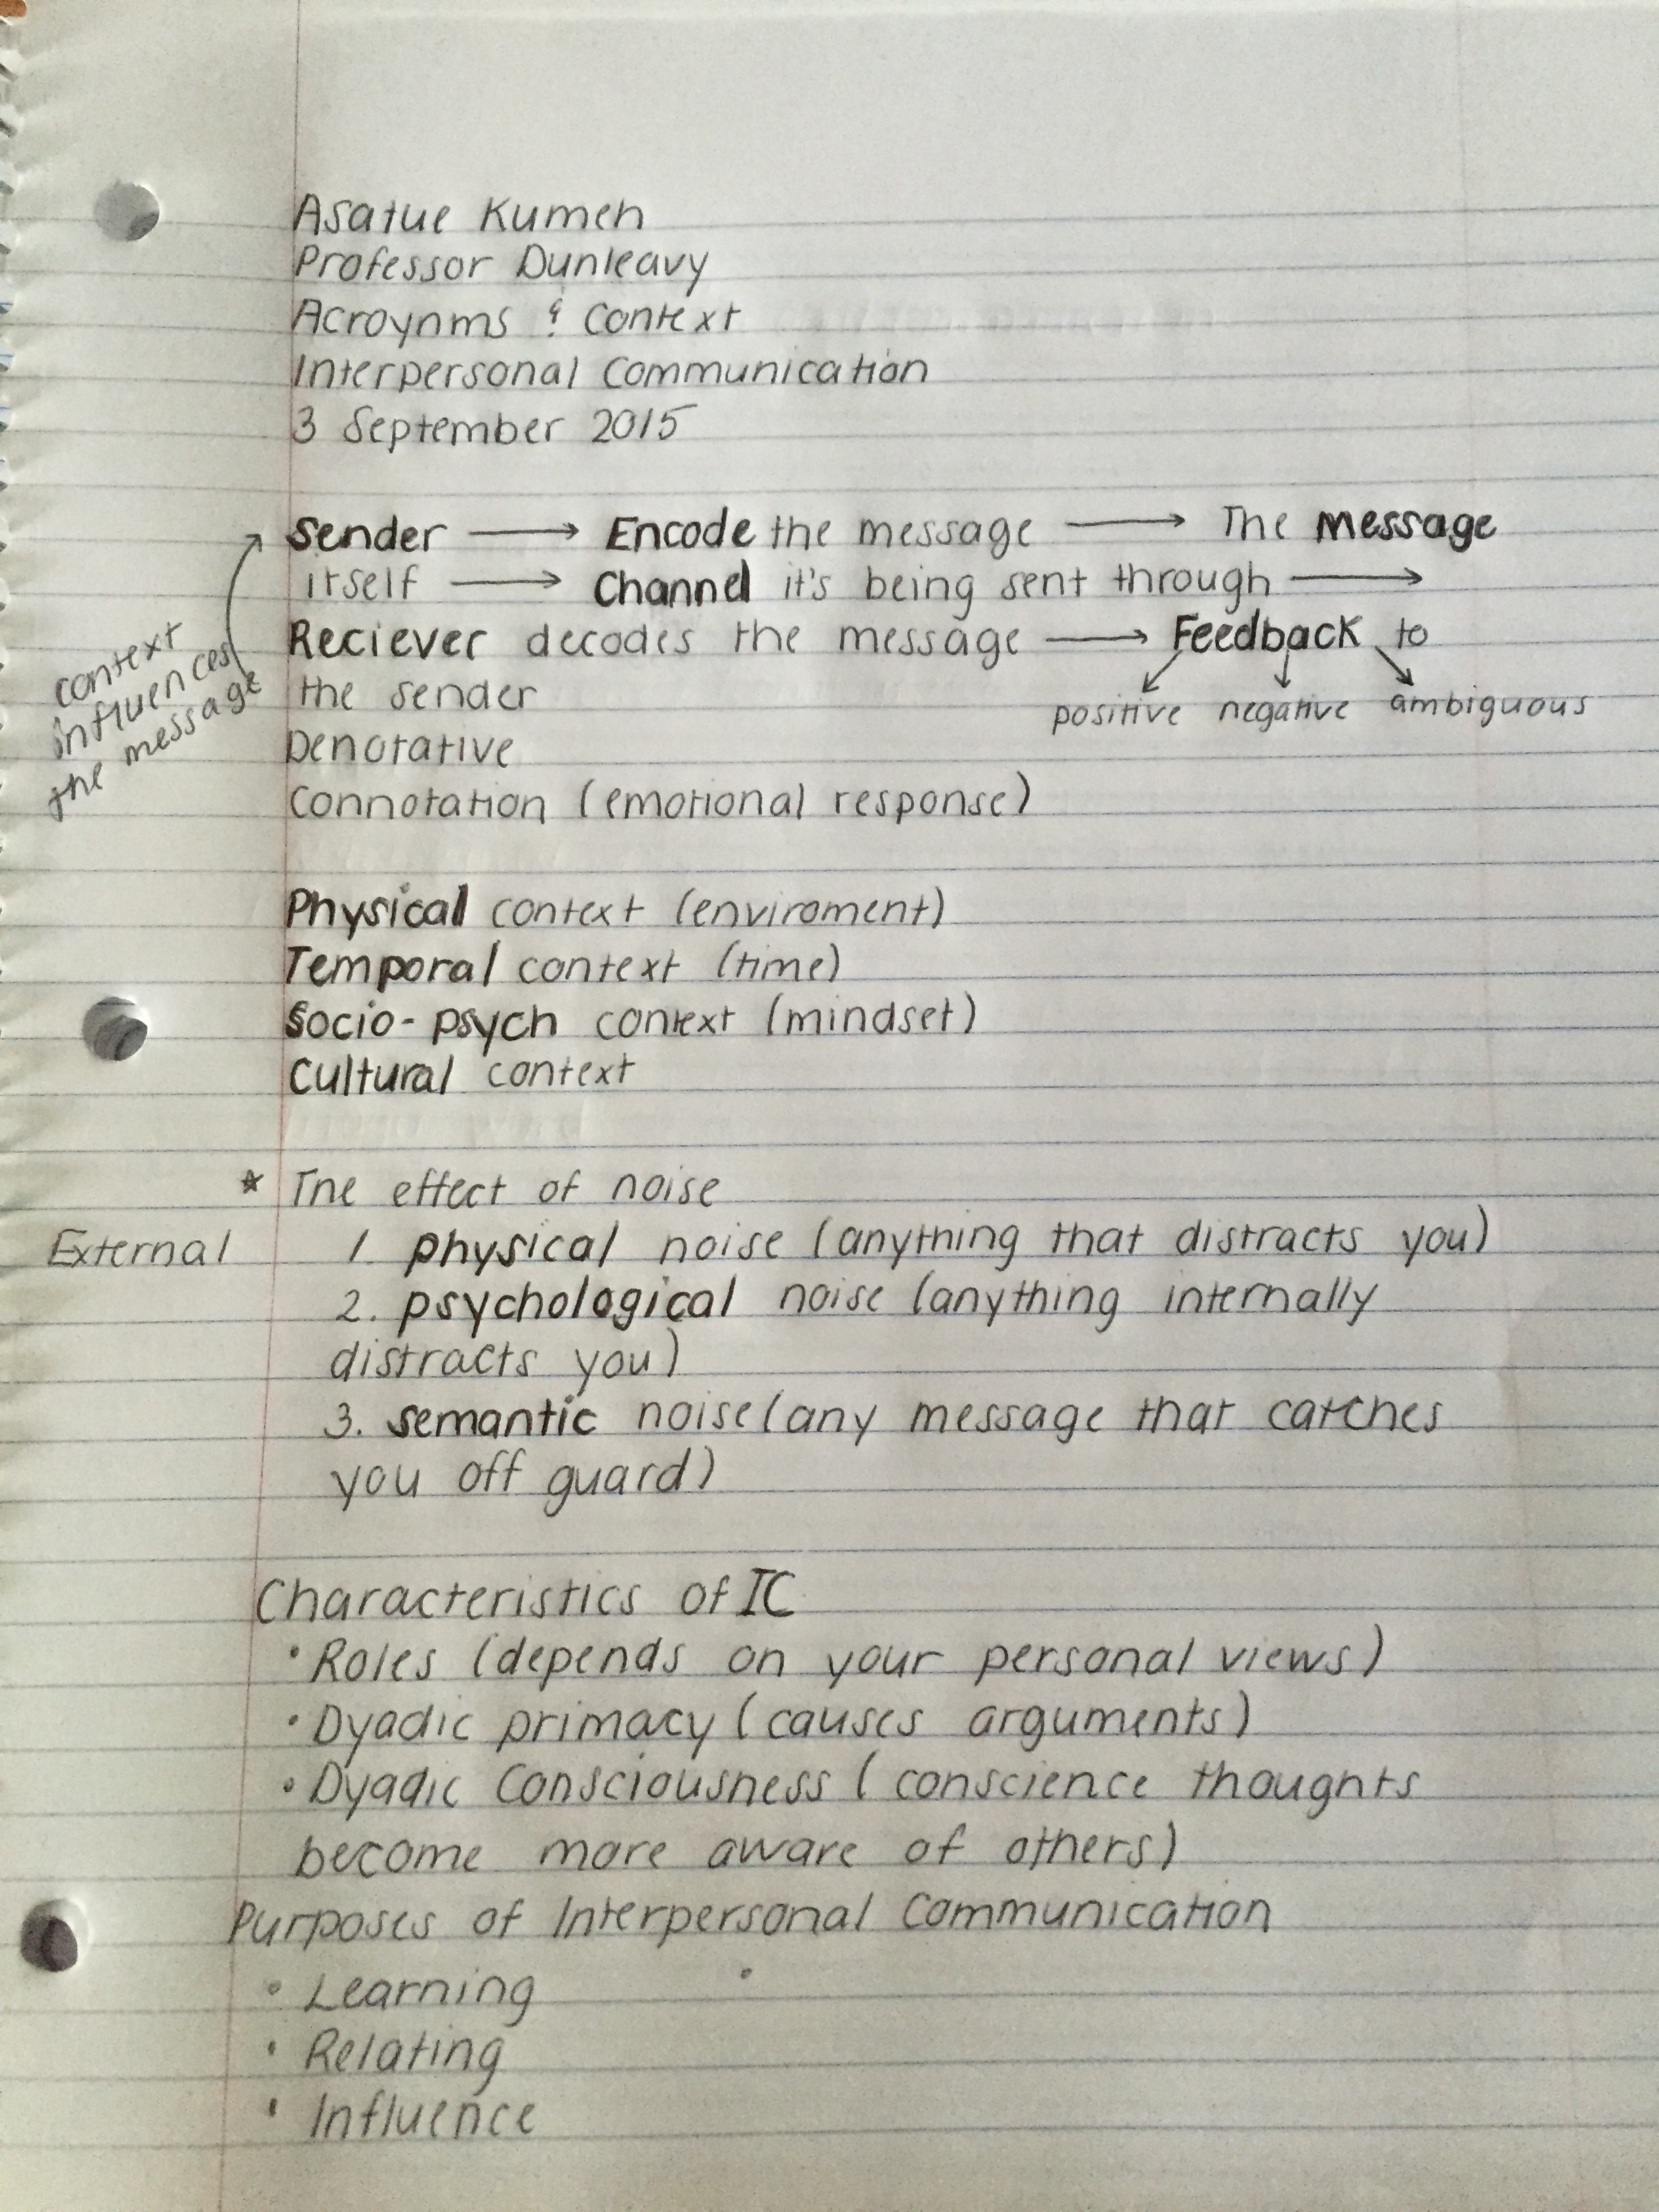 Asatue Kumeh
Professor Dunleavy
Acroynms & Context
Interpersonal Communication
3 September 2015
Sender → Encode the message → The message
itself → Channel it's being sent through →
Reciever decodes the message → Feedback to
the sender
positive negative ambiguous
context
influences
the message
Denotative
Connotation (emotional response)
Physical context (enviroment)
Temporal context (time)
Socio-psych context (mindset)
Cultural context
* The effect of noise
External 1. physical noise (anything that distracts you)
2. psychological noise (anything internally
distracts you)
3. semantic noise (any message that catches
you off guard)
Characteristics of IC
• Roles (depends on your personal views)
• Dyadic primacy (causes arguments)
• Dyadic Consciousness (conscience thoughts
become more aware of others)
Purposes of Interpersonal Communication
• Learning
• Relating
• Influence